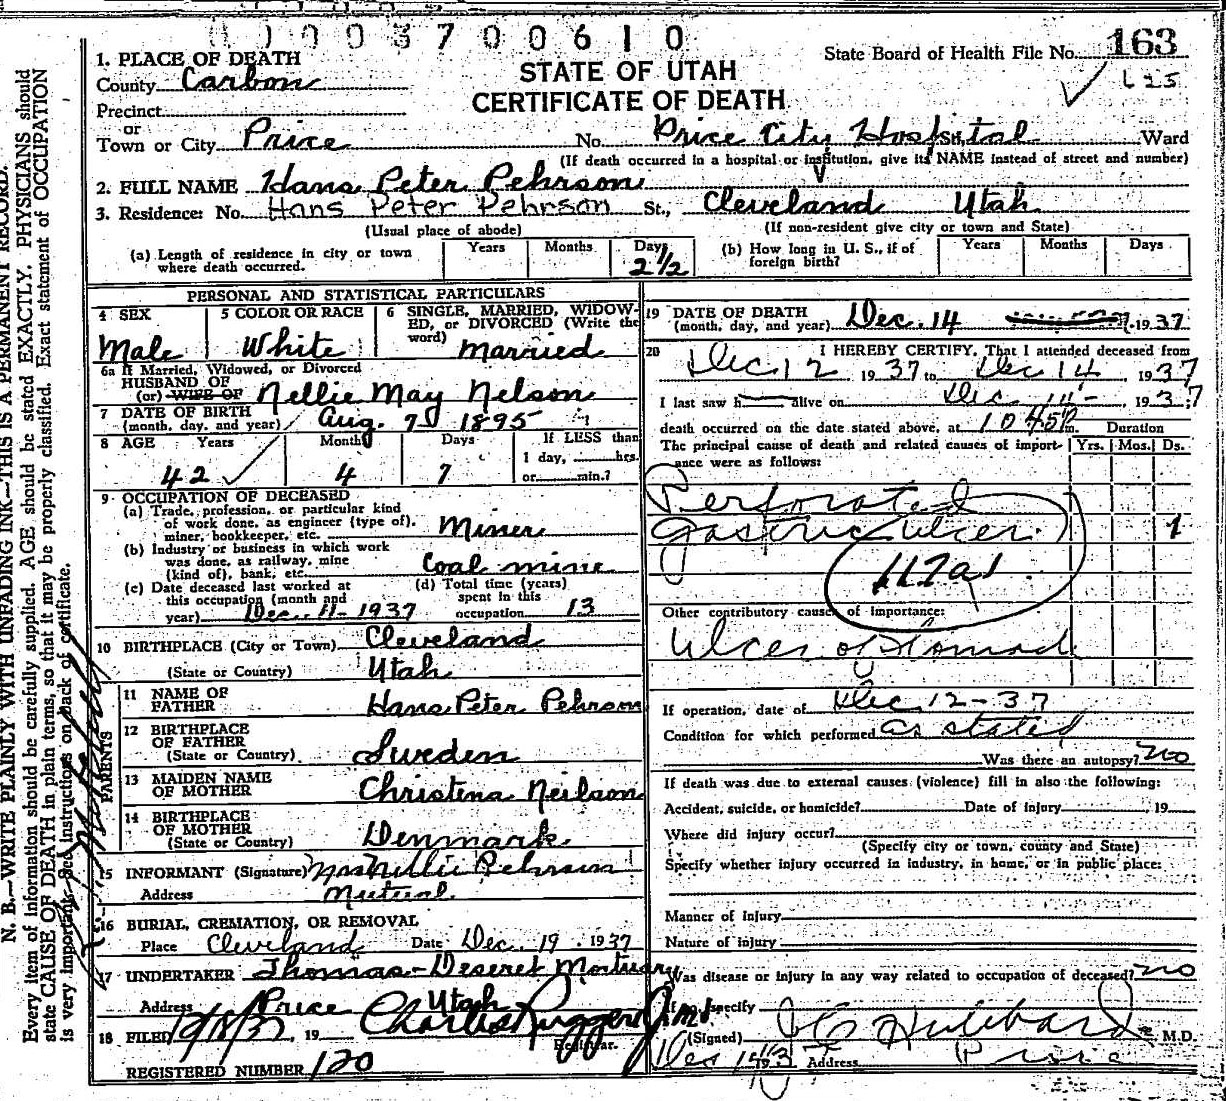 0 0 0 3 7 0 0 6 1 0
State Board of Health File No. 163
625
STATE OF UTAH
CERTIFICATE OF DEATH
1. PLACE OF DEATH
County Carbon
Precinct
or
Town or City Price No. Price City Hospital St. Ward
(If death occurred in a hospital or institution, give its NAME instead of street and number)
2. FULL NAME Hans Peter Pehrson
3. Residence: No. Hans Peter Pehrson St., Cleveland Utah
(Usual place of abode) (If non-resident give city or town and State)
(a) Length of residence in city or town where death occurred. Years Months Days 2 1/2
(b) How long in U. S., if of foreign birth? Years Months Days
PERSONAL AND STATISTICAL PARTICULARS
4 SEX Male
5 COLOR OR RACE White
6 SINGLE, MARRIED, WIDOWED, or DIVORCED (Write the word) Married
6a If Married, Widowed, or Divorced
HUSBAND OF
(or) WIFE OF Nellie May Nelson
7 DATE OF BIRTH
(month, day, and year) Aug. 7 1895
8 AGE Years 42 Months 4 Days 7 If LESS than 1 day, hrs. or min.?
9 OCCUPATION OF DECEASED
(a) Trade, profession, or particular kind of work done, as engineer (type of), miner, bookkeeper, etc. Miner
(b) Industry or business in which work was done, as railway, mine (kind of), bank, etc. Coal mine
(c) Date deceased last worked at this occupation (month and year) Dec. 11-1937
(d) Total time (years) spent in this occupation 13
10 BIRTHPLACE (City or Town) Cleveland
(State or Country) Utah
PARENTS
11 NAME OF FATHER Hans Peter Pehrson
12 BIRTHPLACE OF FATHER
(State or Country) Sweden
13 MAIDEN NAME OF MOTHER Christena Neilson
14 BIRTHPLACE OF MOTHER
(State or Country) Denmark
15 INFORMANT (Signature) Mrs Nellie Pehrson
Address Mutual
16 BURIAL, CREMATION, OR REMOVAL
Place Cleveland Date Dec. 19, 1937
17 UNDERTAKER Thomas-Deseret Mortuary
Address Price Utah
18 FILED 19 Registrar.
REGISTERED NUMBER 120
19 DATE OF DEATH
(month, day, and year) Dec. 14 1937
20 I HEREBY CERTIFY, That I attended deceased from
Dec 12 1937 to Dec 14 1937
I last saw h alive on Dec 14- 1937
death occurred on the date stated above, at 10 45 m. Duration
The principal cause of death and related causes of importance were as follows: Yrs. Mos. Ds.
Perforated
gastric ulcer 1
117a1
Other contributory causes of importance:
Ulcer of Stomach
If operation, date of Dec 12-37
Condition for which performed as stated
Was there an autopsy? no
If death was due to external causes (violence) fill in also the following:
Accident, suicide, or homicide? Date of injury 19
Where did injury occur?
(Specify city or town, county and State)
Specify whether injury occurred in industry, in home, or in public place:
Manner of Injury
Nature of Injury
Was disease or injury in any way related to occupation of deceased? no
If so, specify
(Signed) Hubbard M.D.
Address Price
N. B.—WRITE PLAINLY WITH UNFADING INK—THIS IS A PERMANENT RECORD.
Every item of information should be carefully supplied. AGE should be stated EXACTLY. PHYSICIANS should
state CAUSE OF DEATH in plain terms, so that it may be properly classified. Exact statement of OCCUPATION
is very important. See instructions on back of certificate.